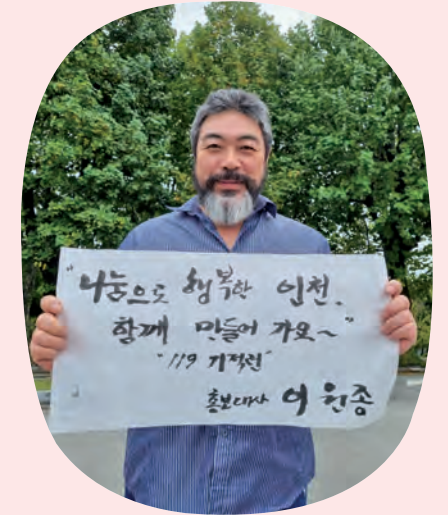 "나눔으로 행복한 인천,
함께 만들어 가요~"
"119 기적런"
홍보대사 이원종